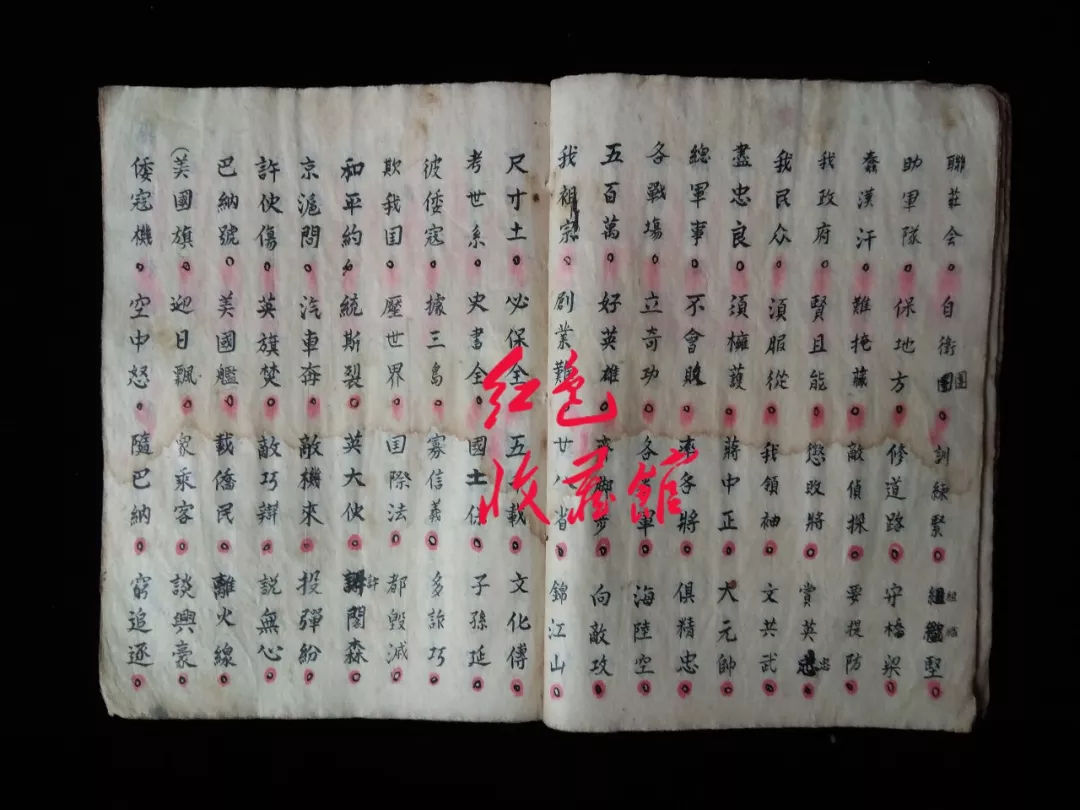 聯莊会。自衛團團。訓練緊。組織堅。
助軍隊。保地方。修道路。守橋梁。
蠢漢汗。難掩藏。敵偵探。要提防。
我政府。賢且能。懲敗將。賞英忠。
我民众。須服從。我領袖。文共武。
盡忠良。須擁護。蔣中正。大元帥。
總軍事。不會敗。率各將。俱精忠。
各戰場。立奇功。各 軍。海陸空。
五百萬。好英雄。齊脚步。向敵攻。
我祖宗。創業難。廿八省。錦江山。
尺寸土。必保全。五 載。文化傳。
考世系。史書全。國土保。子孫延。
彼倭寇。據三島。寡信義。多詐巧。
欺我国。壓世界。国際法。都毀滅。
和平約。統斯裂。英大使。許閣森。
京滬間。汽車奔。敵機來。投彈紛。
許使傷。英旗焚。敵巧辯。説無心。
巴納號。美國艦。載僑民。離火線。
(美國旗。迎日飄。衆乘客。談興豪。
倭寇機。空中怒。隨巴納。窮追逐。
红色
收藏館